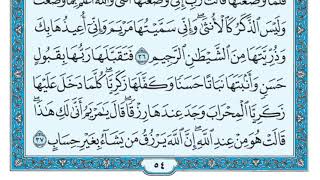 فَلَمَّا وَضَعَتْهَا قَالَتْ رَبِّ إِنِّي وَضَعْتُهَا أُنثَىٰ وَٱللَّهُ أَعْلَمُ بِمَا وَضَعَتْ
وَلَيْسَ ٱلذَّكَرُ كَٱلْأُنثَىٰ ۖ وَإِنِّي سَمَّيْتُهَا مَرْيَمَ وَإِنِّي أُعِيذُهَا بِكَ
وَذُرِّيَّتَهَا مِنَ ٱلشَّيْطَٰنِ ٱلرَّجِيمِ ٣٦ فَتَقَبَّلَهَا رَبُّهَا بِقَبُولٍ
حَسَنٍ وَأَنۢبَتَهَا نَبَاتًا حَسَنًا وَكَفَّلَهَا زَكَرِيَّا ۖ كُلَّمَا دَخَلَ عَلَيْهَا
زَكَرِيَّا ٱلْمِحْرَابَ وَجَدَ عِندَهَا رِزْقًا ۖ قَالَ يَٰمَرْيَمُ أَنَّىٰ لَكِ هَٰذَا ۖ
قَالَتْ هُوَ مِنْ عِندِ ٱللَّهِ ۖ إِنَّ ٱللَّهَ يَرْزُقُ مَن يَشَآءُ بِغَيْرِ حِسَابٍ ٣٧
٥٤